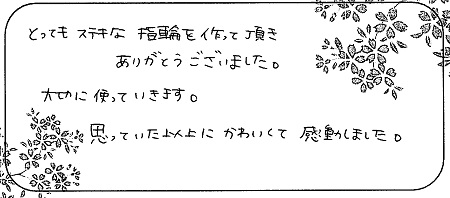 とっても ステキな 指輪を作って頂き
ありがとうございました。
大切に使っていきます。
思っていた以上に かわいくて 感動しました。